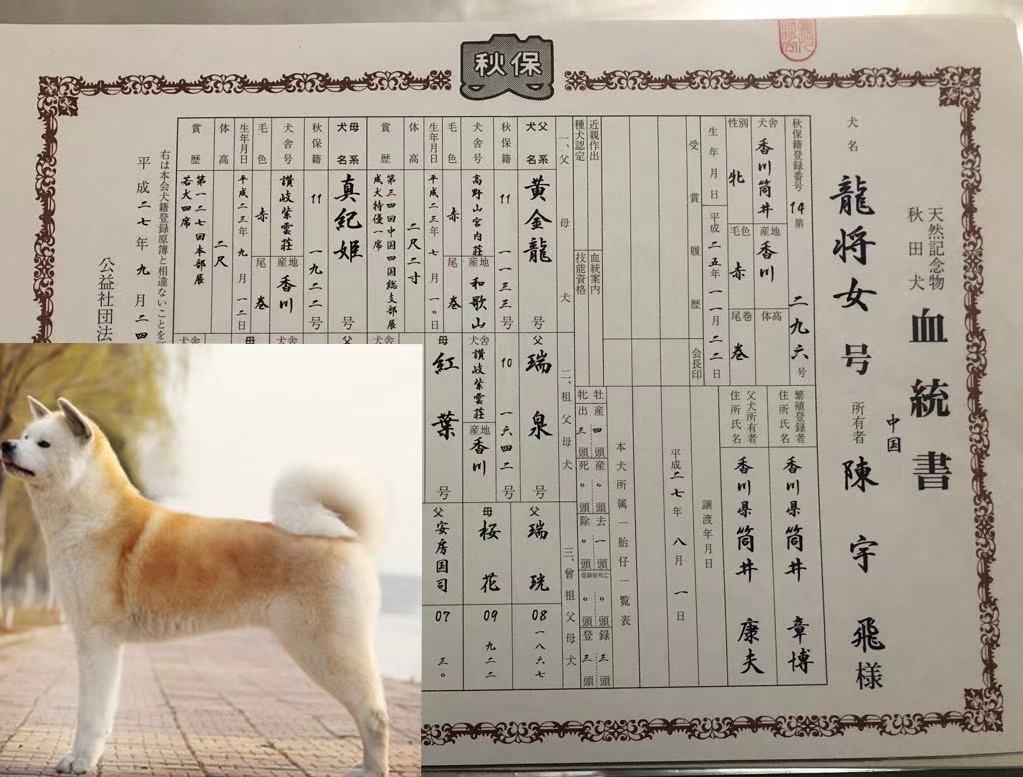 秋保
天然記念物
秋田犬
血統書
犬名
龍将女号
所有者
中国
陳宇飛様
秋保籍登録番号 14第 二九六号
犬舎 香川筒井
産地 香川
体高
性別 牝
毛色 赤
尾巻 巻
生年月日 平成二五年一一月二二日
繁殖登録者住所氏名 香川県筒井章博
父犬所有者住所氏名 香川県筒井康夫
受賞履歴
会長印
譲渡年月日
平成二七年八月一日
近親作出
種犬認定
血統案内
技能資格
本犬所属一胎仔一覧表
牡産四頭産。頭去一頭。頭録三頭
牝出三頭死。頭除。頭登録前死亡。頭登三頭
一、父母犬
二、祖父母犬
三、曾祖父母犬
父系犬名 黄金龍
秋保籍 11 一一三三号
犬舎号 高野山宮内荘
産地 和歌山
毛色 赤
尾 巻
生年月日 平成二三年七月一〇日
体高 二尺二寸
賞歴 第三四回中国四国総支部展
成犬特優一席
母系犬名 真紀姫
秋保籍 11 一九二二号
犬舎号 讃岐紫雲荘
産地 香川
毛色 赤
尾 巻
生年月日 平成二三年九月一二日
体高 二尺
賞歴 第一二七回本部展
若犬四席
父 瑞泉号
10 一六四二号
犬舎 讃岐紫雲荘
産地 香川
母 紅葉号
父 瑞珖
08 一八六七
母 桜花
09 九二二
父 安房国司
07 三〇
右は本会犬籍登録原簿と相違ないことを
平成二七年九月二四
公益社団法